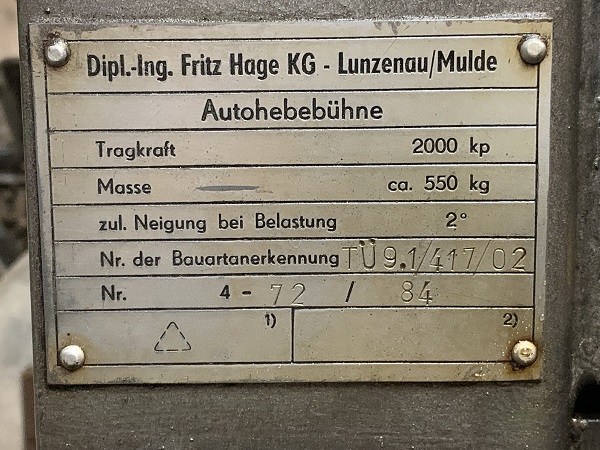 Dipl.-Ing. Fritz Hage KG - Lunzenau/Mulde
Autohebebühne
Tragkraft 2000 kp
Masse ca. 550 kg
zul. Neigung bei Belastung 2°
Nr. der Bauartanerkennung TÜ 9.1/417/02
Nr. 4 - 72 / 84
1) 2)